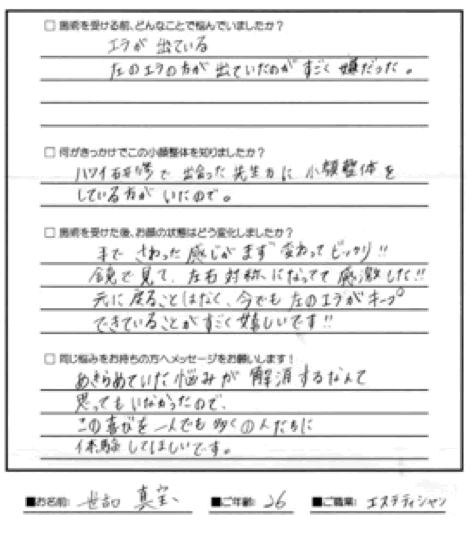 □ 施術を受ける前、どんなことで悩んでいましたか？
エラが出ている
左のエラの方が出ていたのがすごく嫌だった。
□ 何がきっかけでこの小顔整体を知りましたか？
ハワイ研修で出会った先生方に小顔整体を
している方がいたので。
□ 施術を受けた後、お顔の状態はどう変化しましたか？
手でさわった感じがまず変わってビックリ!!
鏡で見て、左右対称になってて感激した!!
元に戻ることはなく、今でも左のエラがキープ
できていることがすごく嬉しいです!!
□ 同じ悩みをお持ちの方へメッセージをお願いします！
あきらめていた悩みが解消するなんて
思ってもいなかったので、
この喜びを一人でも多くの人たちに
体験してほしいです。
■お名前: 真宝 ■ご年齢: 26 ■ご職業: エステティシャン